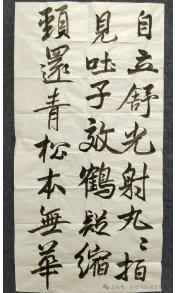 自立舒光射九〻拍
見吐子效鶴髮縮
頸還青松本無華